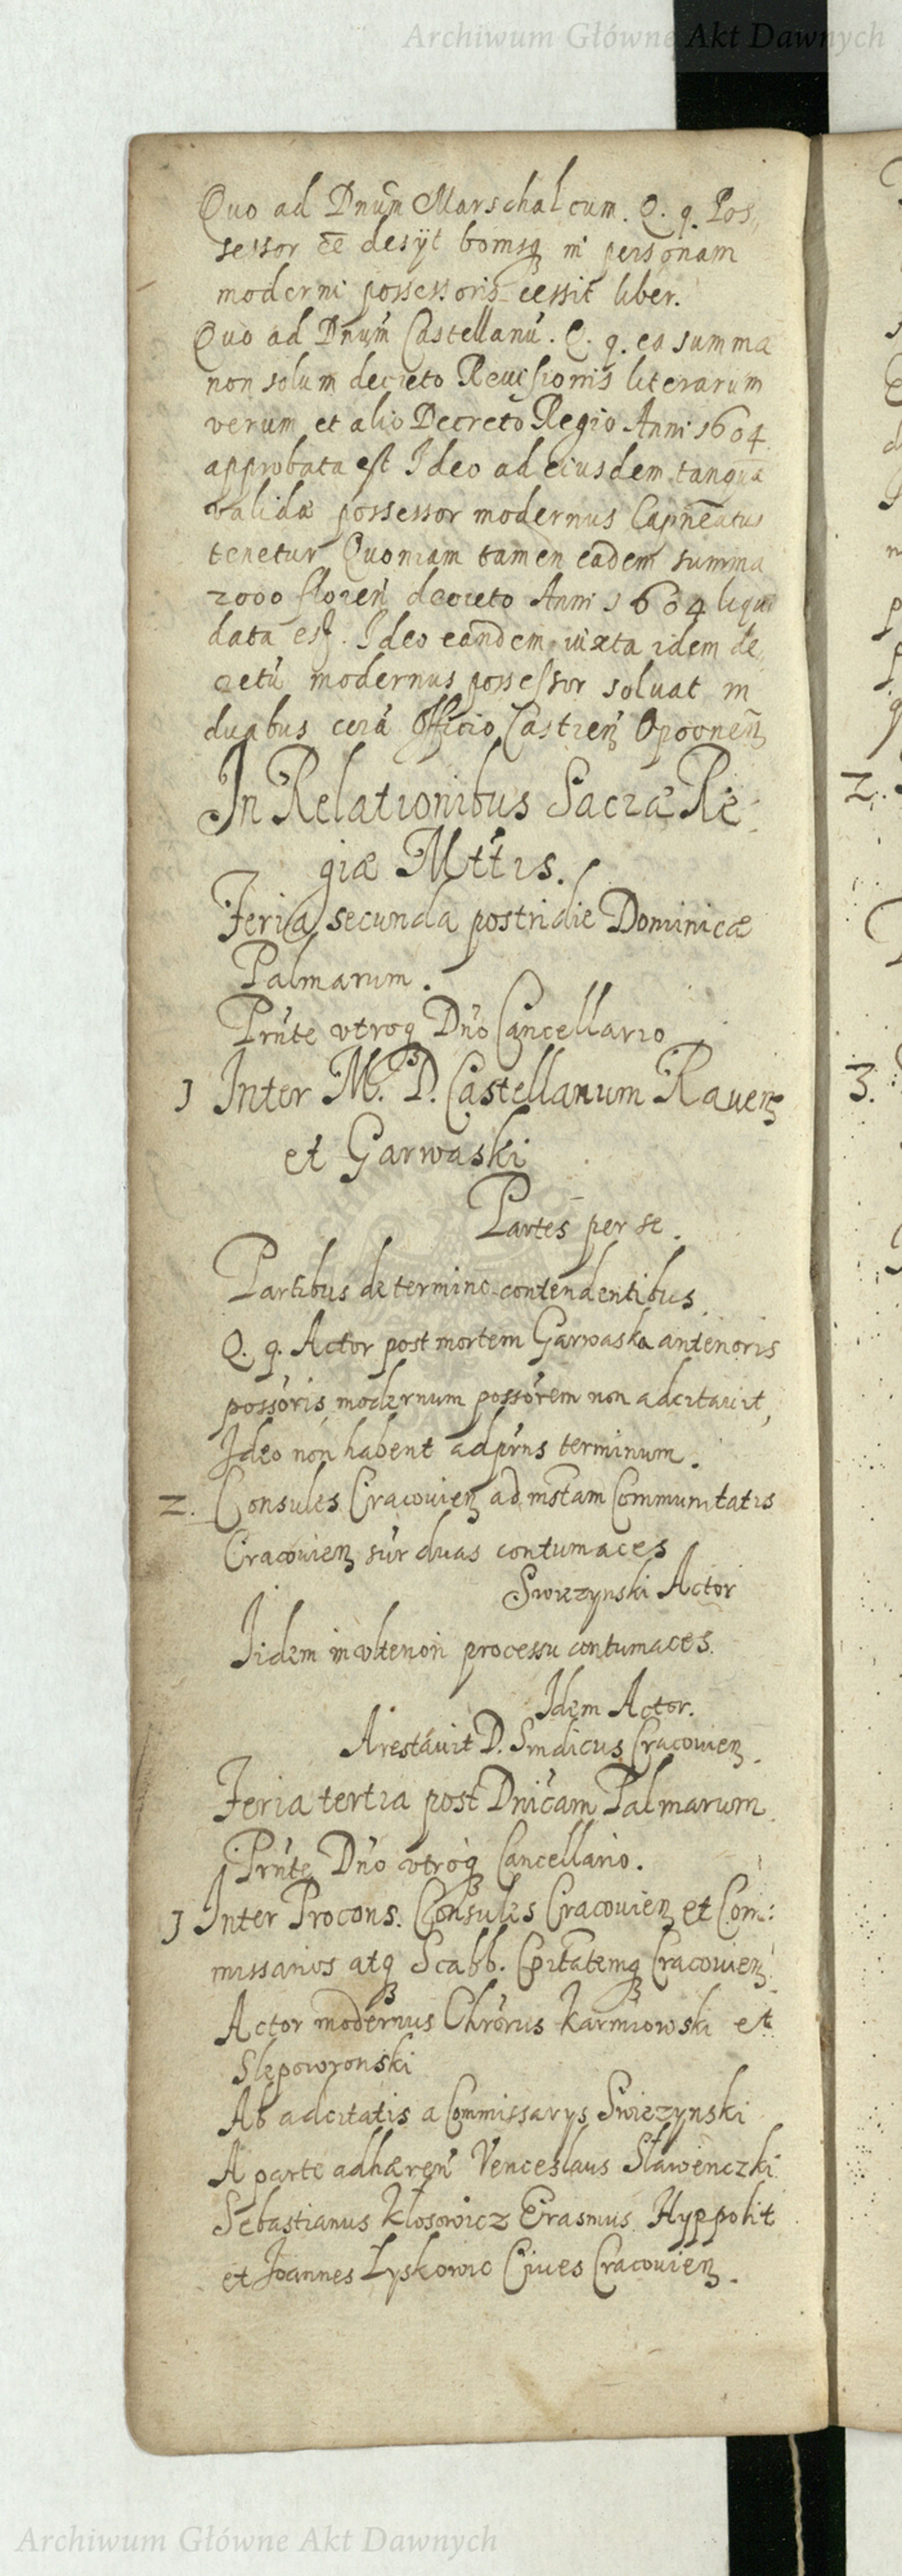 Archiwum Główne Akt Dawnych
Quo ad Dnum Marschalcum. Q. q. Pos„
sessor ēē desijt bonisq in personam
moderni possessoris cessit liber.
Quo ad Dnum Castellanū. Q. q. ea summa
non solum decreto Reuisionis literarum
verum et alio Decreto Regio Anni 1604
approbata est Ideo ad eiusdem tanquā
validæ possessor modernus Capneatus
tenetur Quoniam tamen eadem summa
2000 floren decreto Anni 1604 liqui
data est. Ideo eandem iuxta idem de„
cretū modernus possessor soluat in
duabus cerā Officio Castren Opocnen
In Relationibus Sacræ Re„
giæ Mttis.
Feria secunda postridie Dominicæ
Palmarum.
Prnte vtroq Dno Cancellario
1 Inter M. D. Castellanum Rauen
et Garwaski
Partes per se.
Partibus de termino contendentibus
Q. q. Actor post mortem Garwaski anterioris
possoris modernum possorem non adcitauit,
Ideo non habent ad prns terminum.
2. Consules Cracouien ad instam Communitatis
Cracouien sur duas contumaces
Swiezynski Actor
Iidem in vlteriori processu contumaces.
Idem Actor.
Arestauit D. Sindicus Cracouien.
Feria tertia post Dnicam Palmarum
Prnte Dno vtroq Cancellario.
1 Inter Procons. Consules Cracouien et Com:
missarios atq Scabb. Cpitatemq Cracouien
Actor modernus Chrorus Karmiowski et
Slepowronski
Ab adcitatis a Commissarys Swiezynski
A parte adhæren Venceslaus Sławenczki
Sebastianus Kłosowicz Erasmus Hyppolit
et Joannes Lyskowic Ciues Cracouien.
2.
3.
Archiwum Główne Akt Dawnych